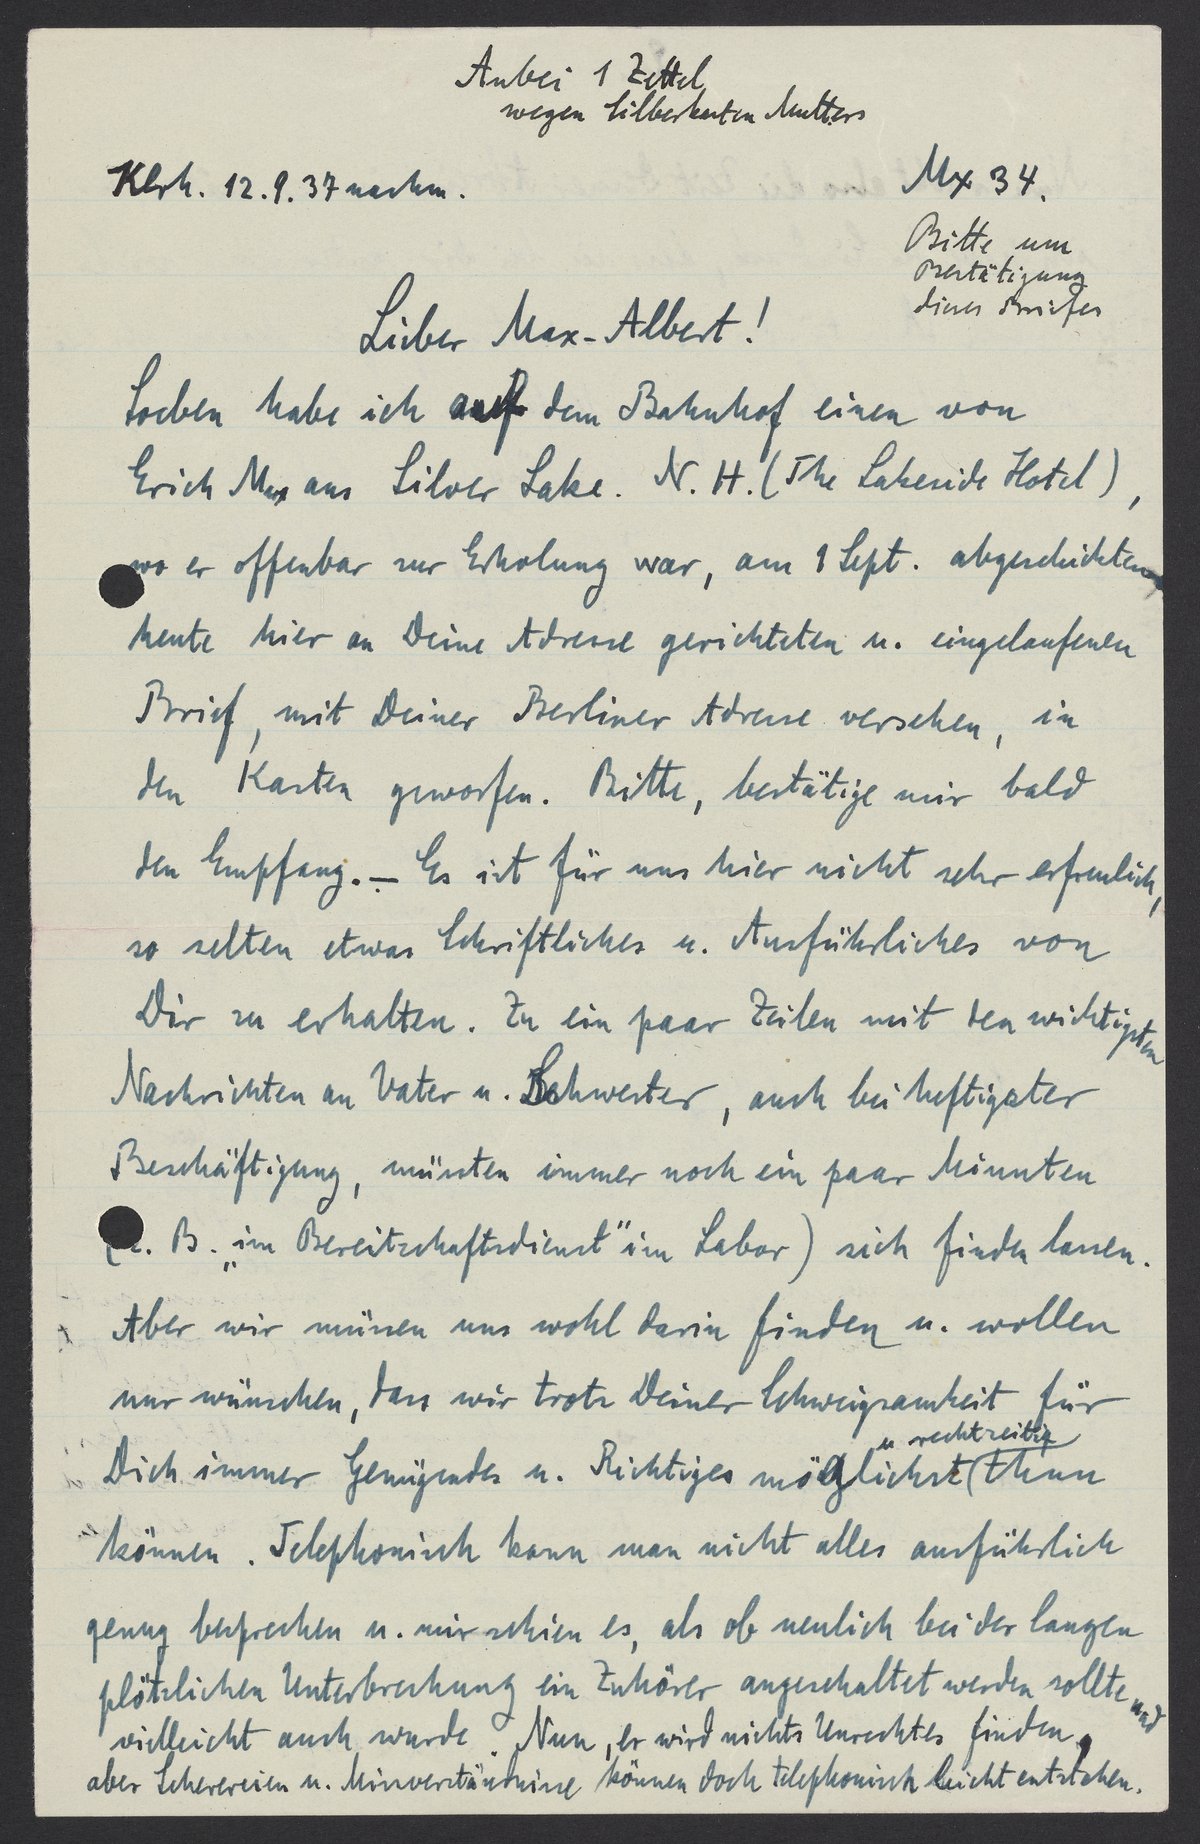 Anbei 1 Zettel
wegen Silberkasten Mutters
Klrh. 12.9.37 nachm.
Mx 34.
Bitte um
Bestätigung
dieses Briefes
Lieber Max-Albert!
Soeben habe ich auf dem Bahnhof einen von
Erich Mx aus Silver Lake. N. H. (The Lakeside Hotel),
wo er offenbar zur Erholung war, am 1 Sept. abgeschickten
heute hier an Deine Adresse gerichteten u. eingelaufenen
Brief, mit Deiner Berliner Adresse versehen, in
den Kasten geworfen. Bitte, bestätige mir bald
den Empfang. – Es ist für uns hier nicht sehr erfreulich,
so selten etwas Schriftliches u. Ausführliches von
Dir zu erhalten. Zu ein paar Zeilen mit den wichtigsten
Nachrichten an Vater u. Schwester, auch bei heftigster
Beschäftigung, müssten immer noch ein paar Minuten
(z. B. „im Bereitschaftsdienst" im Labor) sich finden lassen.
Aber wir müssen uns wohl darin finden u. wollen
nur wünschen, dass wir trotz Deiner Schweigsamkeit für
u rechtzeitig
Dich immer Genügendes u. Richtiges möglichst (thun
können. Telephonisch kann man nicht alles ausführlich
genug besprechen u. mir schien es, als ob neulich bei der langen
plötzlichen Unterbrechung ein Zuhörer angeschaltet werden sollte und
vielleicht auch wurde. Nun, er wird nichts Unrechtes finden,
aber Scherereien u. Missverständnisse können doch telephonisch leicht entstehen.